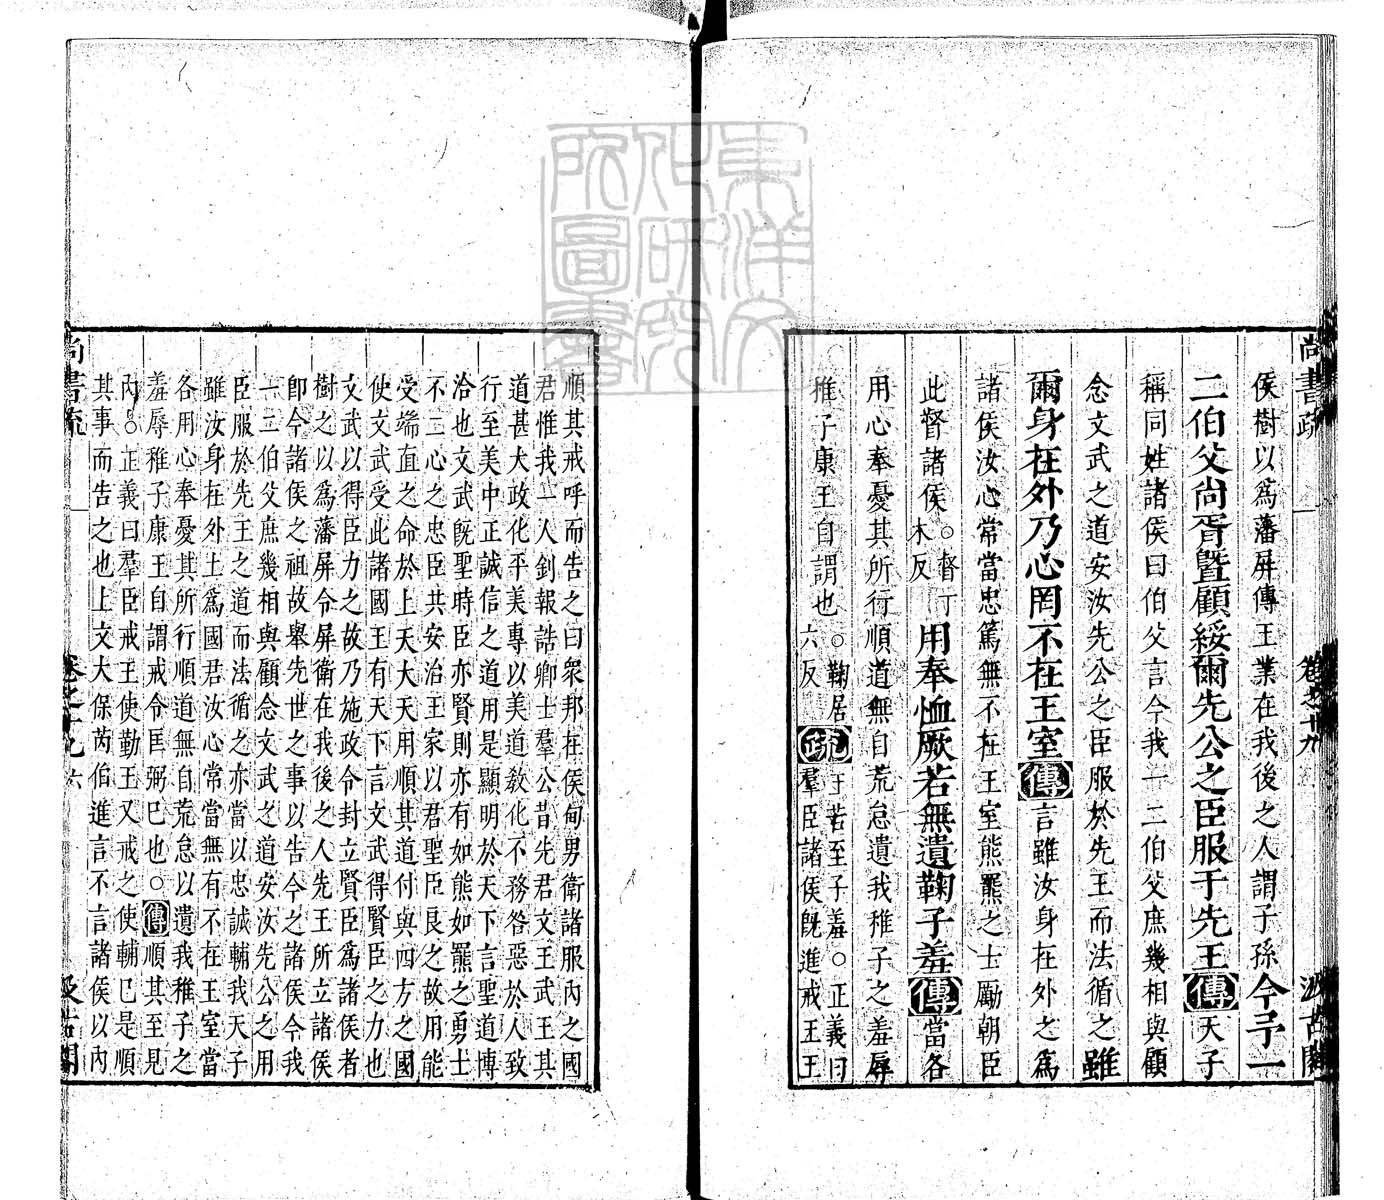 尚書疏
卷之十九
汲古閣
侯樹以爲藩屏傳王業在我後之人謂子孫今予一
二伯父尚胥曁顧綏爾先公之臣服于先王傳天子
稱同姓諸侯曰伯父言今我一二伯父庶幾相與顧
念文武之道安汝先公之臣服於先王而法循之雖
爾身在外乃心罔不在王室傳言雖汝身在外之爲
諸侯汝心常當忠篤無不在王室熊羆之士勵朝臣
此督諸侯○督丁
木反
用奉恤厥若無遺鞠子羞傳當各
用心奉憂其所行順道無自荒怠遺我稚子之羞辱
稚子康王自謂也○鞠居
六反
疏
王若至子羞○正義曰
羣臣諸侯旣進戒王王
順其戒呼而告之曰衆邦在侯甸男衛諸服內之國
君惟我一人釗報誥卿士羣公昔先君文王武王其
道甚大政化平美專以美道敎化不務咎惡於人致
行至美中正誠信之道用是顯明於天下言聖道博
洽也文武旣聖時臣亦賢則亦有如熊如羆之勇士
不二心之忠臣共安治王家以君聖臣良之故用能
受端直之命於上天大天用順其道付與四方之國
使文武受此諸國王有天下言文武得賢臣之力也
文武以得臣力之故乃施政令封立賢臣爲諸侯者
樹之以爲藩屏令屏衛在我後之人先王所立諸侯
卽今諸侯之祖故舉先世之事以告今之諸侯今我
一二伯父庶幾相與顧念文武之道安汝先公之用
臣服於先王之道而法循之亦當以忠誠輔我天子
雖汝身在外土爲國君汝心常當無有不在王室當
各用心奉憂其所行順道無自荒怠以遺我稚子之
羞辱稚子康王自謂戒令匡弼已也○傳順其至見
內○正義曰羣臣戒王使勤王又戒之使輔已是順
其事而告之也上文大保芮伯進言不言諸侯以內
尚書疏
卷之十九
六
汲古閣
東洋文
化研究
所圖書